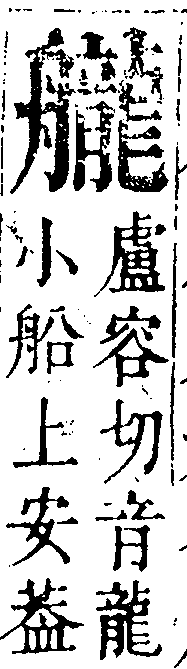 艬
盧容切音龍
小船上安葢